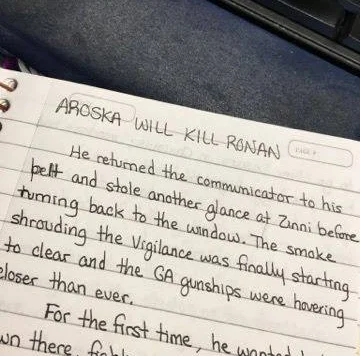 AROSKA WILL KILL RONAN
He returned the communicator to his
belt and stole another glance at Zinni before
turning back to the window. The smoke
shrouding the Vigilance was finally starting
to clear and the GA gunships were hovering
closer than ever.
For the first time, he wanted
down there,